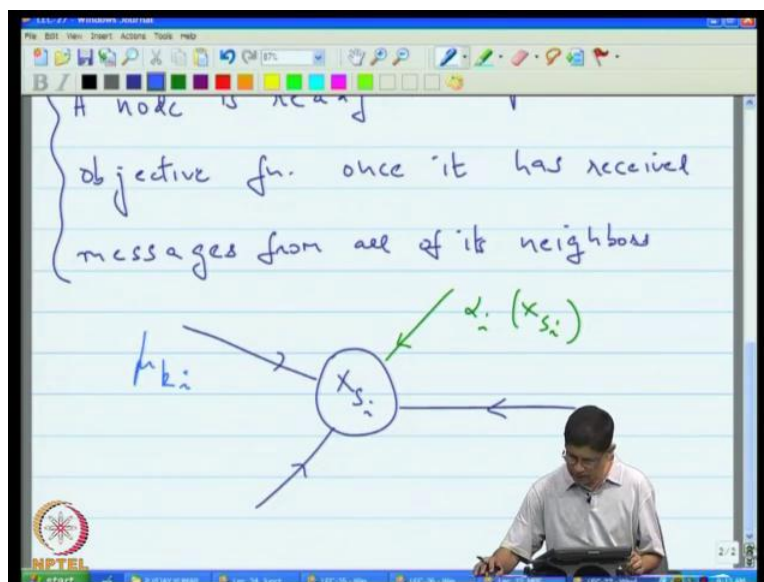 LEC-27 - Windows Journal
File Edit View Insert Actions Tools Help
87%
B I
A node is ready
objective fn. once it has received
messages from all of its neighbors
α_i (x_{S_i})
μ_{ki}
x_{S_i}
NPTEL
2/2
start